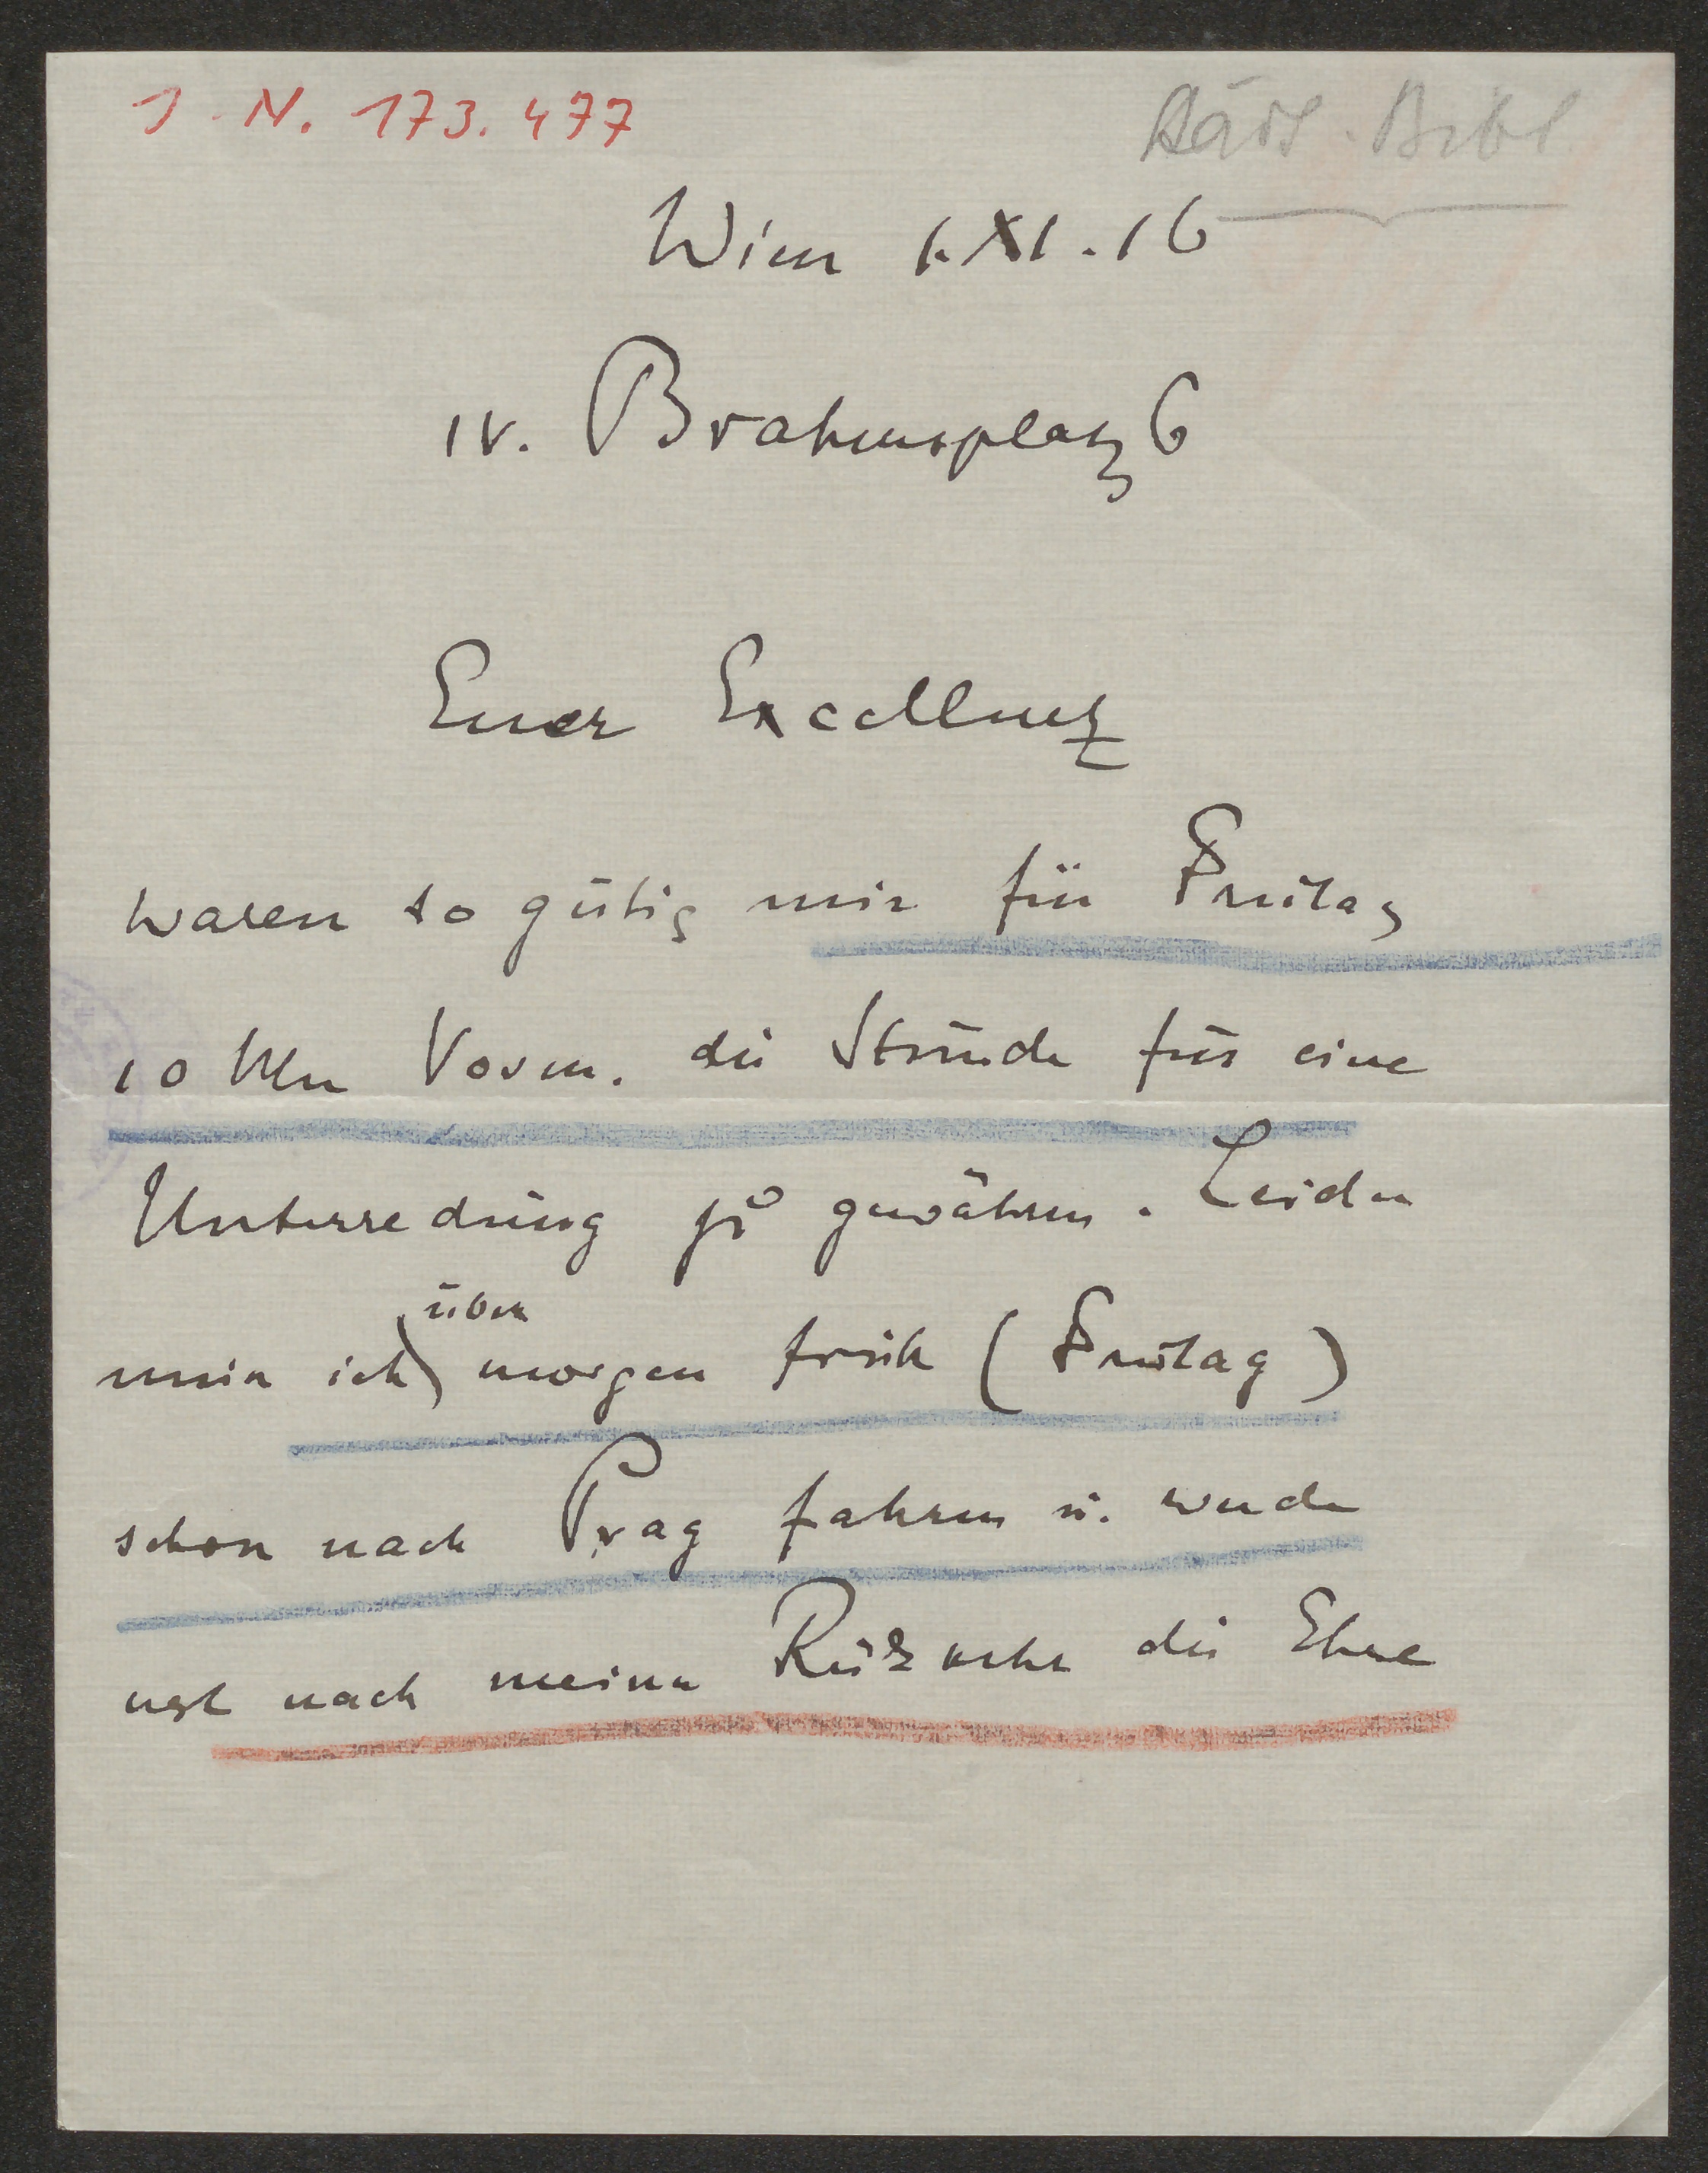 I. N. 173.477
Wien 1.XI.16
IV. Brahmsplatz 6
Euer Excellenz
waren so gütig mir für Freitag
10 Uhr Vorm. die Stunde für eine
Unterredung zu gewähren. Leider
muss ich über morgen früh (Freitag)
schon nach Prag fahren u. werde
erst nach meiner Rückkehr die Ehre